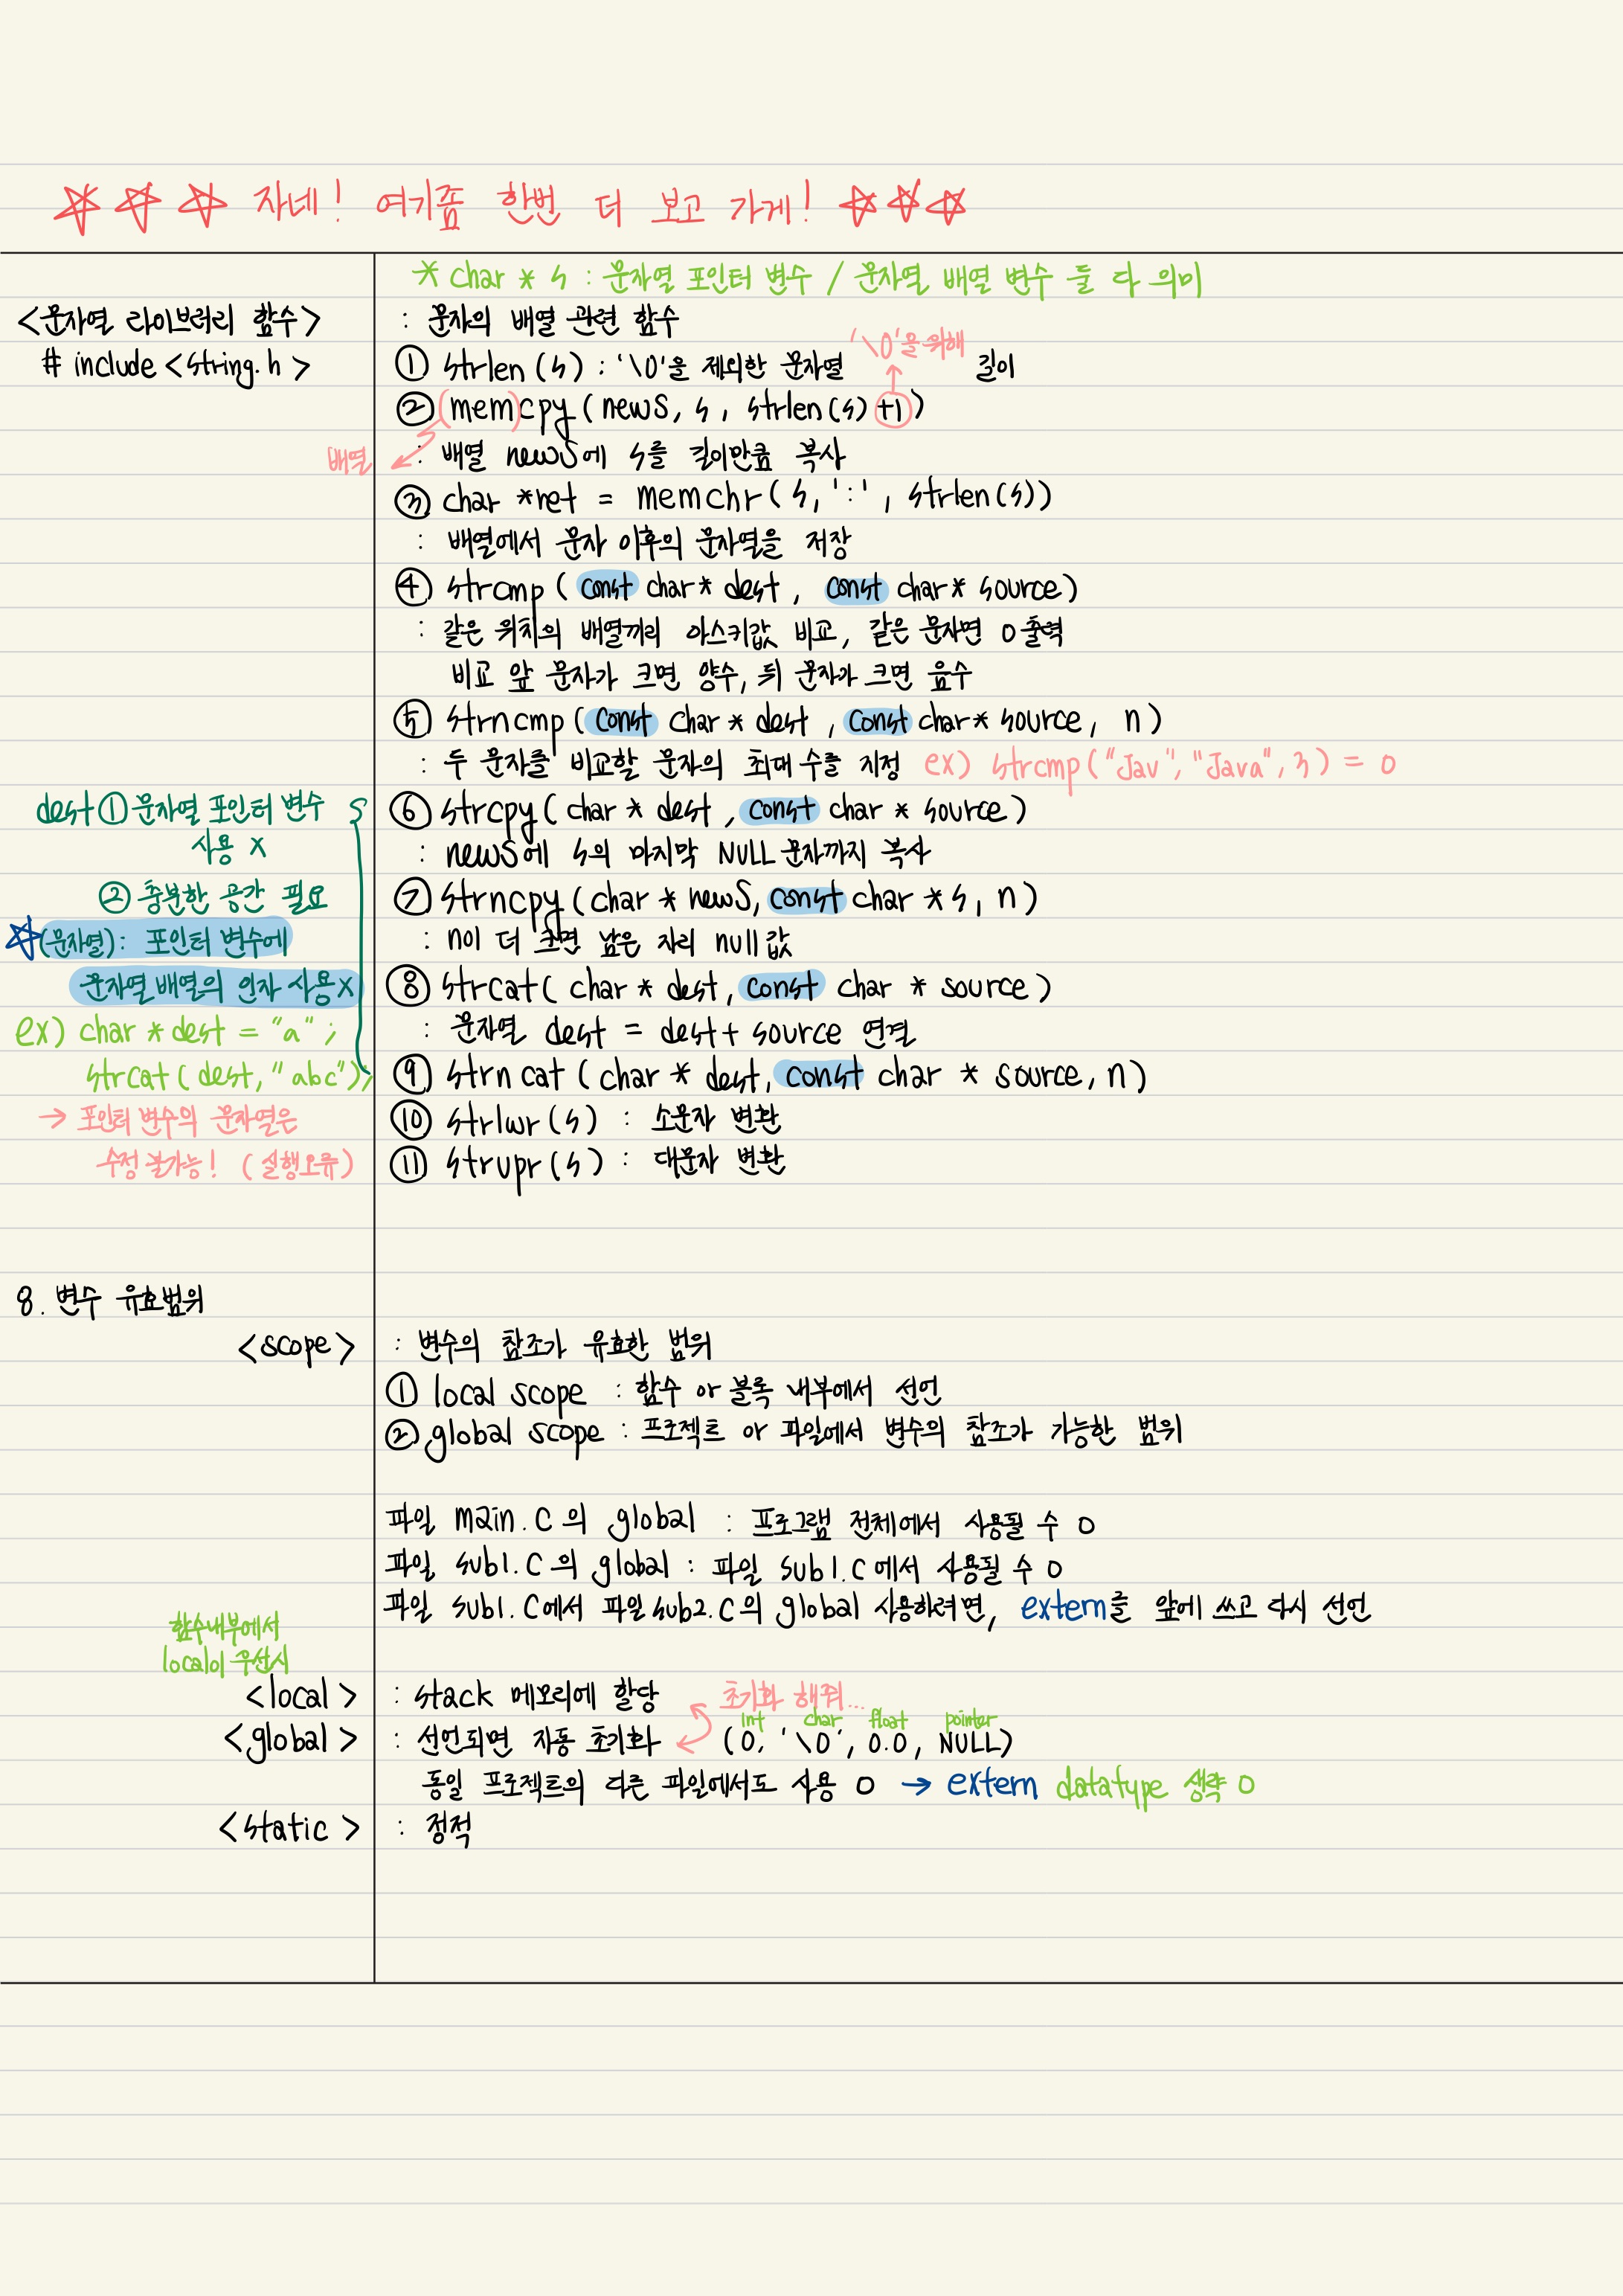 ☆ ☆ ☆ 자네! 여기좀 한번 더 보고 가게! ☆☆☆
* char * s : 문자열 포인터 변수 / 문자열 배열 변수 둘 다 의미
<문자열 라이브러리 함수>
# include <string.h>
: 문자의 배열 관련 함수
'\0'을 위해
① strlen(s) : '\0'을 제외한 문자열 길이
② (mem)cpy(newS, s, strlen(s)+1)
배열
: 배열 newS에 s를 길이만큼 복사
③ char *ret = memchr(s, ':', strlen(s))
: 배열에서 문자 이후의 문자열을 저장
④ strcmp (const char* dest, const char* source)
: 같은 위치의 배열끼리 아스키값 비교, 같은 문자면 0출력
비교 앞 문자가 크면 양수, 뒤 문자가 크면 음수
⑤ strncmp (const char* dest, const char* source, n)
: 두 문자를 비교할 문자의 최대 수를 지정 ex) strcmp("Jav", "Java", 3) = 0
⑥ strcpy(char * dest, const char * source)
: newS에 s의 마지막 NULL 문자까지 복사
⑦ strncpy(char * newS, const char * s, n)
: n이 더 크면 남은 자리 null값
⑧ strcat( char * dest, const char * source)
: 문자열 dest = dest + source 연결
⑨ strn cat (char * dest, const char * source, n)
⑩ strlwr(s) : 소문자 변환
⑪ strupr(s) : 대문자 변환
dest ① 문자열 포인터 변수
사용 x
② 충분한 공간 필요
☆(문자열): 포인터 변수에
문자열 배열의 인자 사용x
ex) char * dest = "a";
strcat(dest, "abc");
→ 포인터 변수의 문자열은
수정 불가능! (실행오류)
8. 변수 유효범위
<scope>
: 변수의 참조가 유효한 범위
① local scope : 함수 or 블록 내부에서 선언
② global scope : 프로젝트 or 파일에서 변수의 참조가 가능한 범위
파일 main.c의 global : 프로그램 전체에서 사용될 수 o
파일 sub1.c의 global : 파일 sub1.c에서 사용될 수 o
파일 sub1.c에서 파일 sub2.c의 global 사용하려면, extern를 앞에 쓰고 다시 선언
함수내부에서
local이 우선시
<local> : stack 메모리에 할당
초기화 해줘...
int char float pointer
<global> : 선언되면 자동 초기화 (0, '\0', 0.0, NULL)
동일 프로젝트의 다른 파일에서도 사용 o → extern datatype 생략 o
<static> : 정적